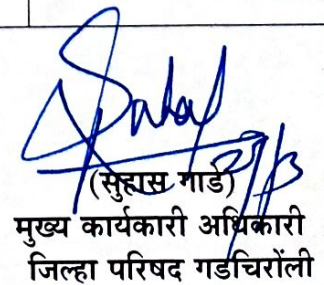 (सुहास गाडे)
मुख्य कार्यकारी अधिकारी
जिल्हा परिषद गडचिरोंली